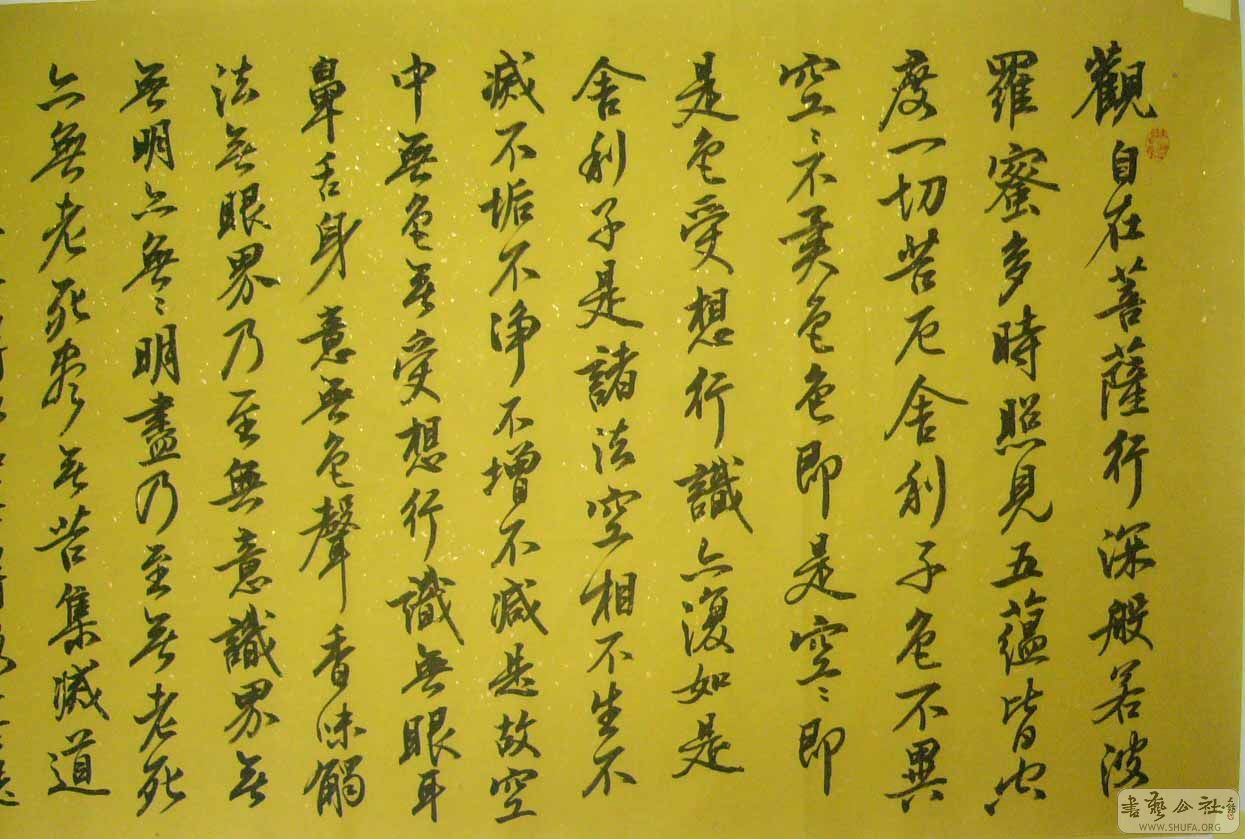 觀自在菩薩行深般若波
羅蜜多時照見五蘊皆空
度一切苦厄舍利子色不異
空〻不異色色即是空〻即
是色受想行識亦復如是
舍利子是諸法空相不生不
滅不垢不淨不增不減是故空
中無色無受想行識無眼耳
鼻舌身意無色聲香味觸
法無眼界乃至無意識界無
無明亦無〻明盡乃至無老死
亦無老死盡無苦集滅道
書藝公社
WWW.SHUFA.ORG